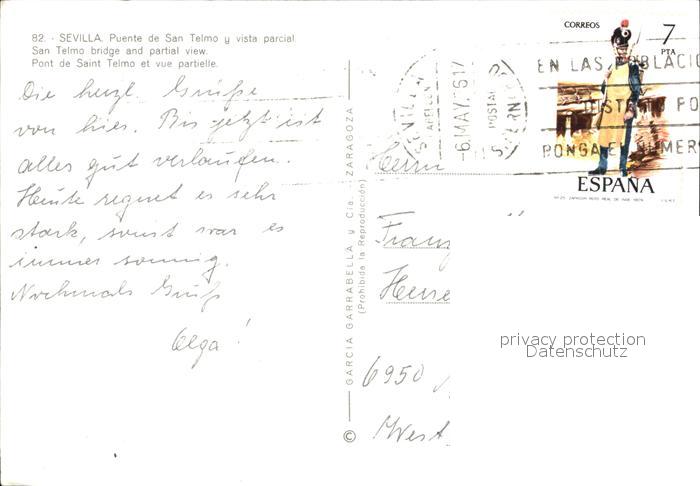 82. - SEVILLA. Puente de San Telmo y vista parcial.
San Telmo bridge and partial view.
Pont de Saint Telmo et vue partielle.
Die herzl. Grüße
von hier. Bis jetzt ist
alles gut verlaufen.
Heute regnet es sehr
stark, sonst war es
immer sonnig.
Nochmals Gruß
Olga!
GARCIA GARRABELLA y Cia. - ZARAGOZA
(Prohibida la Reproducción)
©
CORREOS
7
PTA
ESPAÑA
SEVILLA
-6.MAY.76 17
POSTAL
EN LAS POBLACIO
DISTR PO
PONGA EL NUMERO
Herrn
Franz
6950
West
privacy protection
Datenschutz